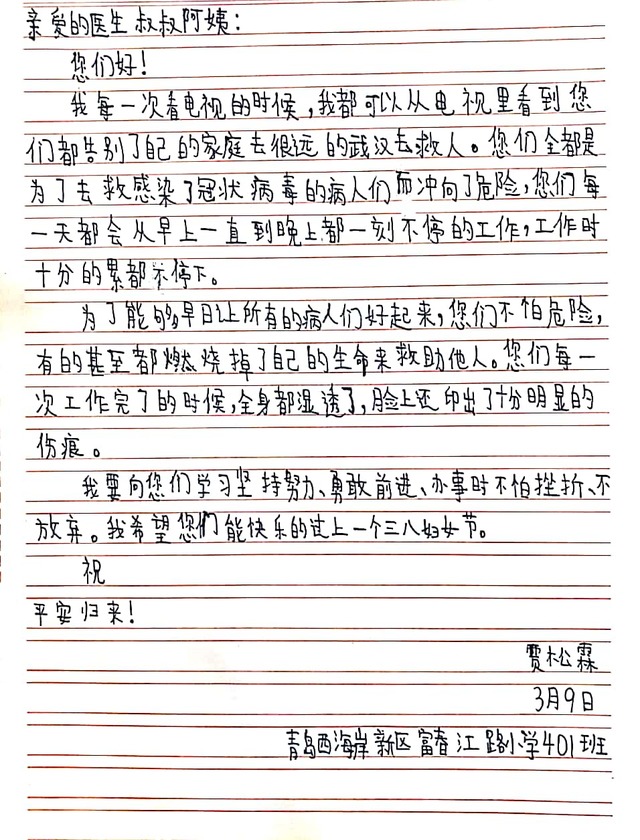 亲爱的医生叔叔阿姨：
您们好！
我每一次看电视的时候，我都可以从电视里看到您
们都告别了自己的家庭去很远的武汉去救人。您们全都是
为了去救感染了冠状病毒的病人们而冲向了危险，您们每
一天都会从早上一直到晚上都一刻不停的工作，工作时
十分的累都不停下。
为了能够早日让所有的病人们好起来，您们不怕危险，
有的甚至都燃烧掉了自己的生命来救助他人。您们每一
次工作完了的时候，全身都湿透了，脸上还印出了十分明显的
伤痕。
我要向您们学习坚持努力、勇敢前进、办事时不怕挫折、不
放弃。我希望您们能快乐的过上一个三八妇女节。
祝
平安归来！
贾松霖
3月9日
青岛西海岸新区富春江路小学401班